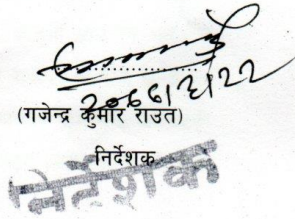 २०६६।३।२२
(गजेन्द्र कुमार राउत)
निर्देशक
निर्देशक